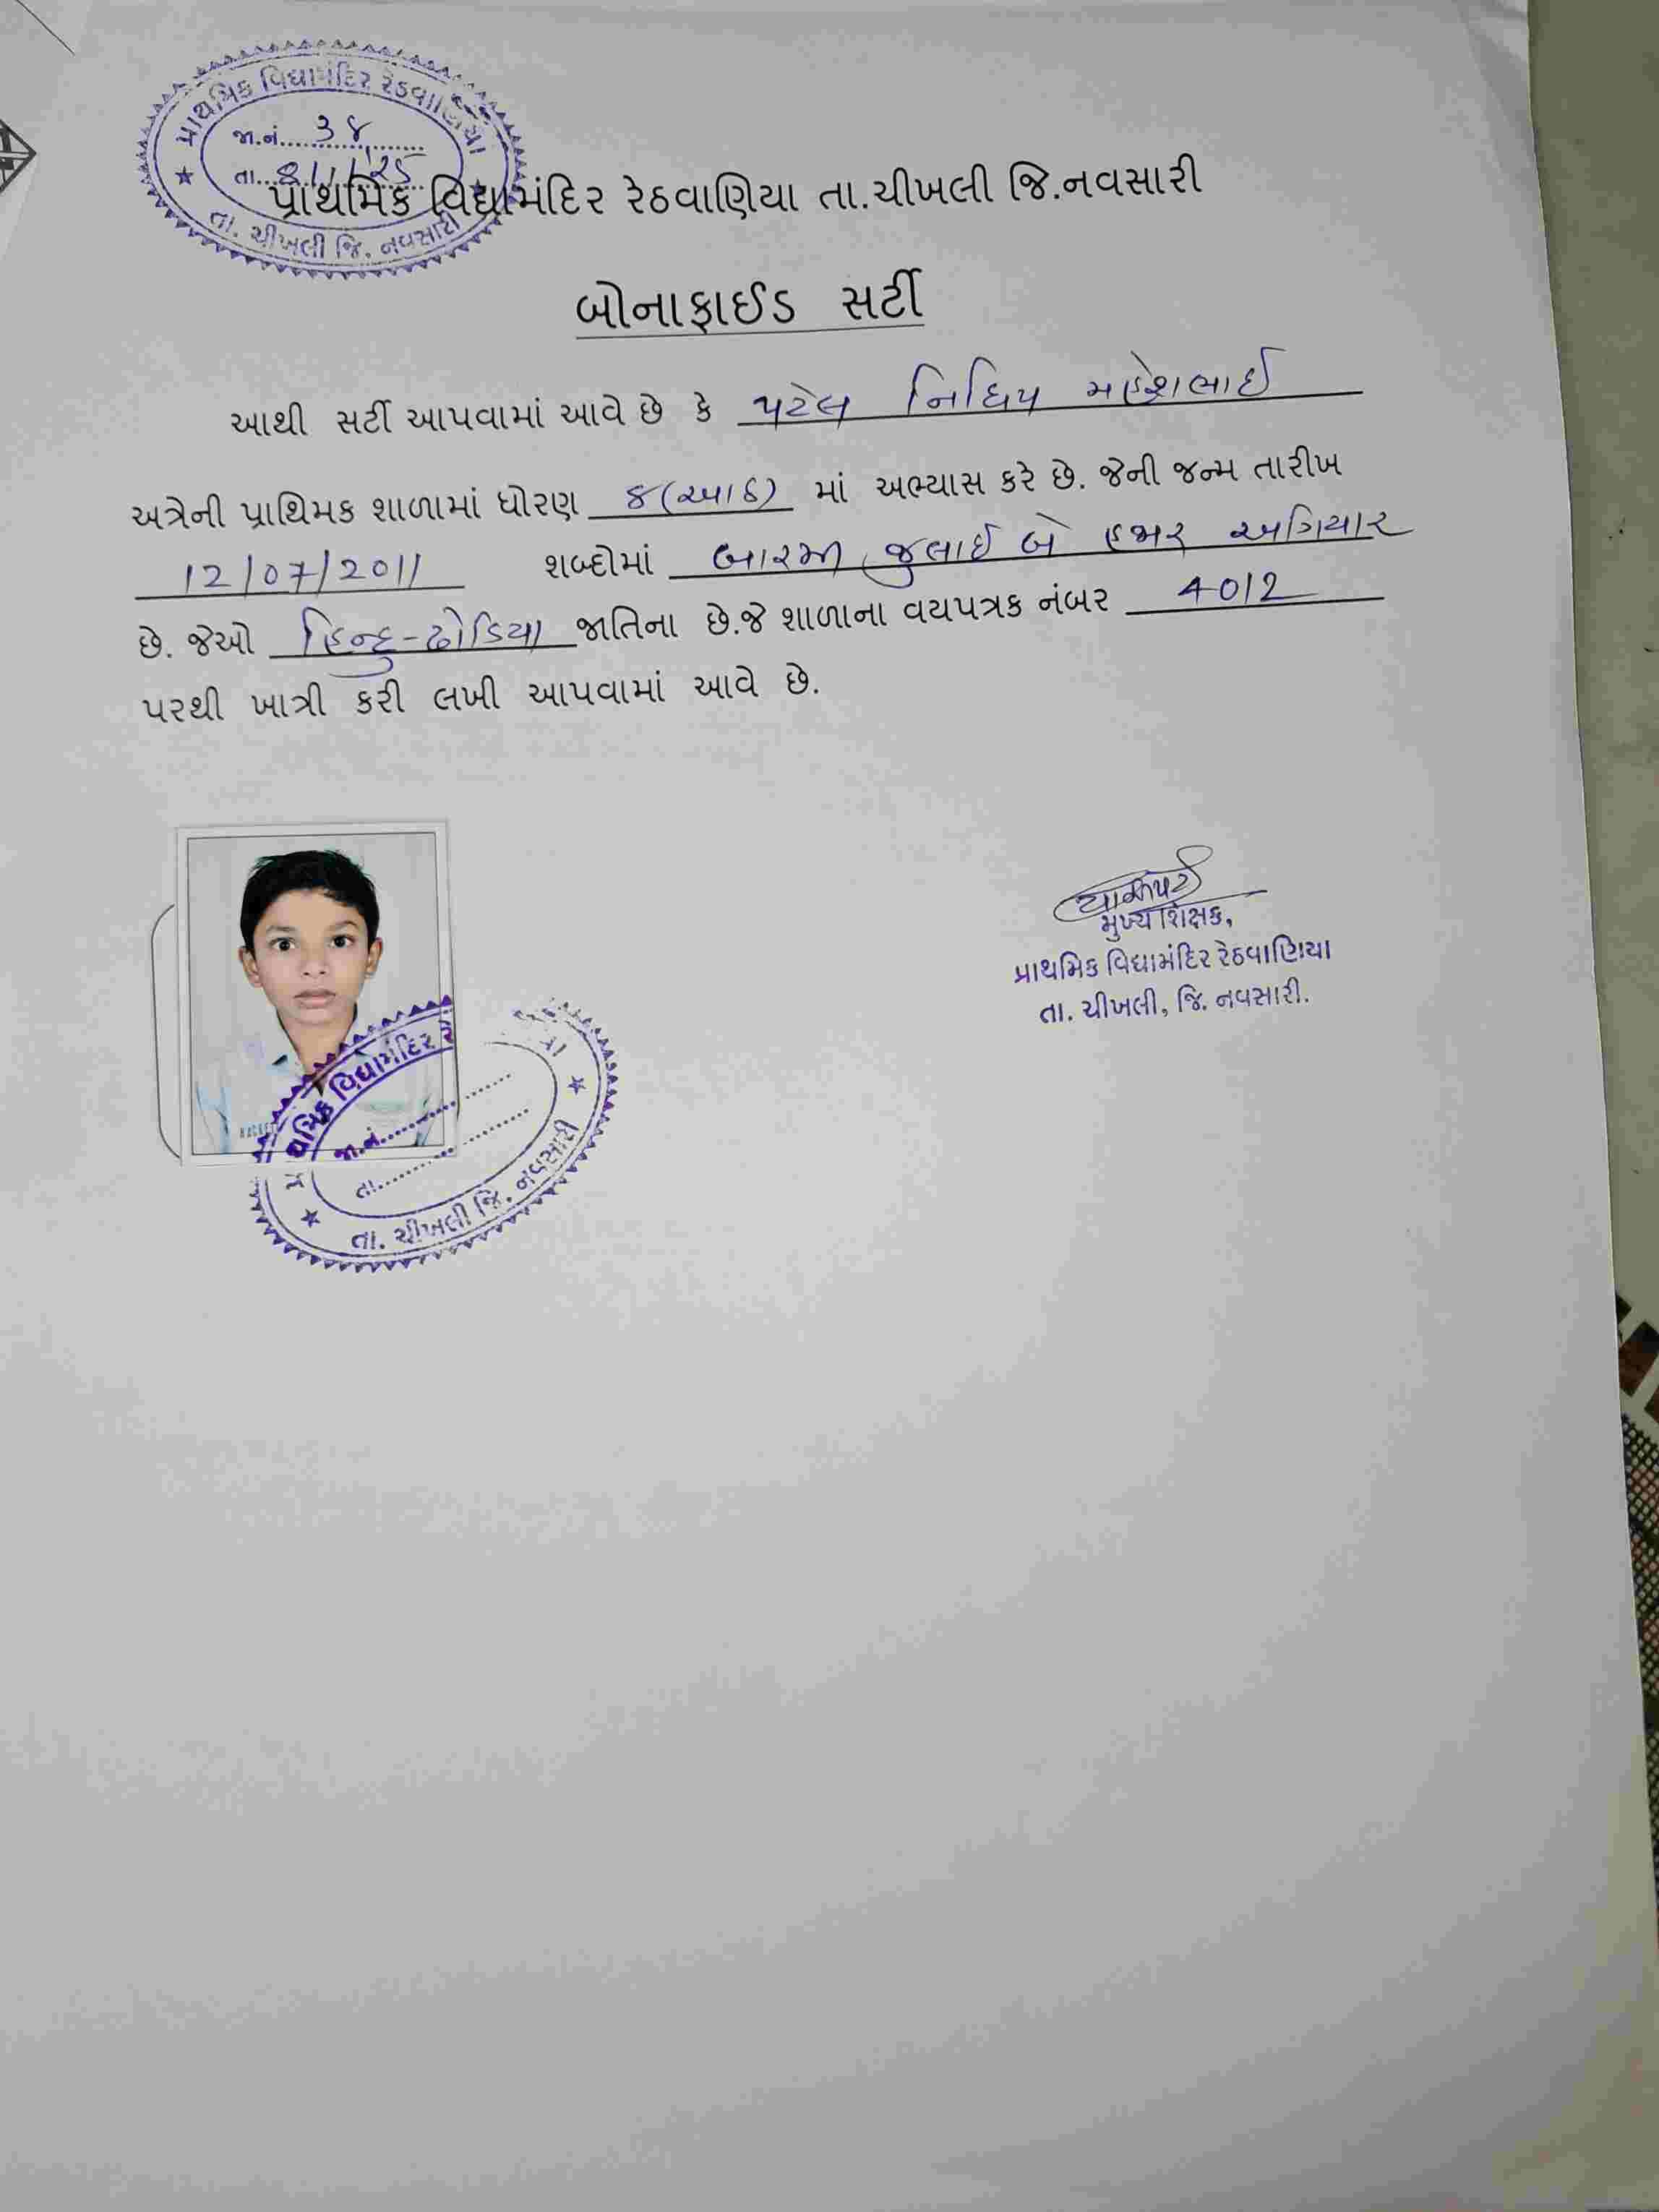 પ્રાથમિક વિદ્યામંદિર રેઠવાણિયા
જા.નં. ૩૪
તા. ૪/૧/૨૫
તા. ચીખલી જિ. નવસારી
પ્રાથમિક વિદ્યામંદિર રેઠવાણિયા તા.ચીખલી જિ.નવસારી
બોનાફાઈડ સર્ટી
આથી સર્ટી આપવામાં આવે છે કે પટેલ નિધિપ મહેશભાઈ
અત્રેની પ્રાથિમક શાળામાં ધોરણ ૮(આઠ) માં અભ્યાસ કરે છે. જેની જન્મ તારીખ
12/07/2011 શબ્દોમાં બારમી જુલાઈ બે હજાર અગિયાર
છે. જેઓ હિન્દુ-ઢોડિયા જાતિના છે.જે શાળાના વયપત્રક નંબર 4012
પરથી ખાત્રી કરી લખી આપવામાં આવે છે.
મુખ્ય શિક્ષક,
પ્રાથમિક વિદ્યામંદિર રેઠવાણિયા
તા. ચીખલી, જિ. નવસારી.
થમિક વિદ્યામંદિર રે
જા.નં.
તા.
તા. ચીખલી જિ. નવસારી